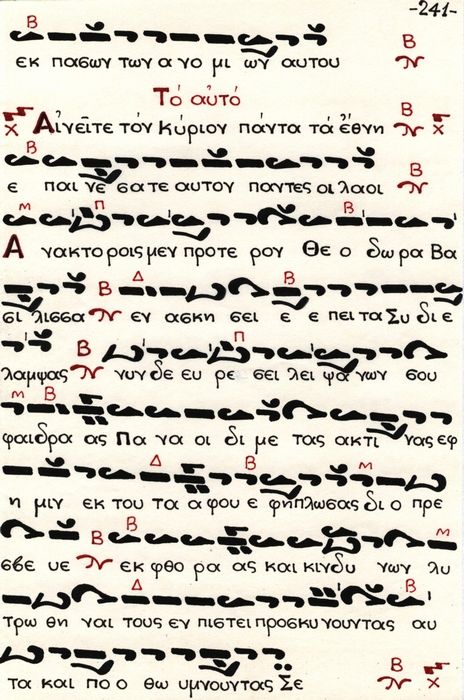 -241-
εκ πασων των α νο μι ων αυτου
Τό αὐτό
Αἰνεῖτε τόν Κύριον πάντα τά ἔθνη
ε παι νε σα τε αυτον παντες οι λαοι
Α νακτο ροις μεν προτε ρον Θε ο δω ρα Βα
σι λισσα εν ασκη σει ε ε πει τα Συ δι ε
λαμψας νυν δε ευ ρε σει λει ψα νων σου
φαιδρα ας Πα να οι δι με τας ακτι νας εφ
η μιν εκ του τα α φου ε φηπλωσας δι ο πρε
σβε υε εκ φθο ρα ας και κινδυ νων λυ
τρω θη ναι τους εν πιστει προσκυνουντας αυ
τα και πο ο θω υμνουντας Σε